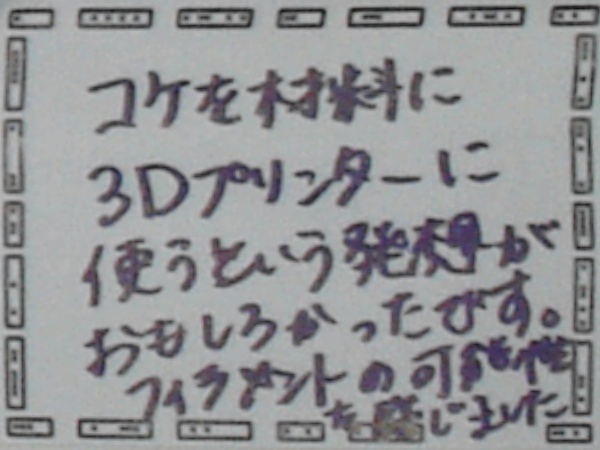 コケを材料に
3Dプリンターに
使うという発想が
おもしろかったです。
フィラメントの可能性
を感じました